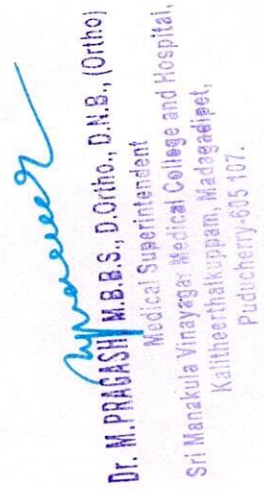 Dr. M.PRAGASH M.B.B.S., D.Ortho., D.N.B., (Ortho)
Medical Superintendent
Sri Manakula Vinayagar Medical College and Hospital,
Kalitheerthalkuppam, Madagadipet,
Puducherry-605 107.